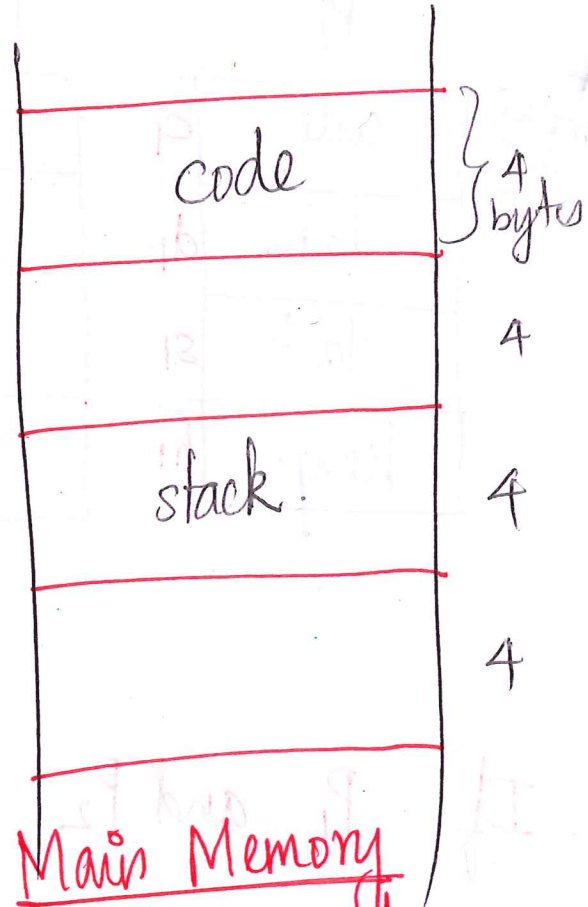 code
4
bytes
4
stack.
4
4
Main Memory